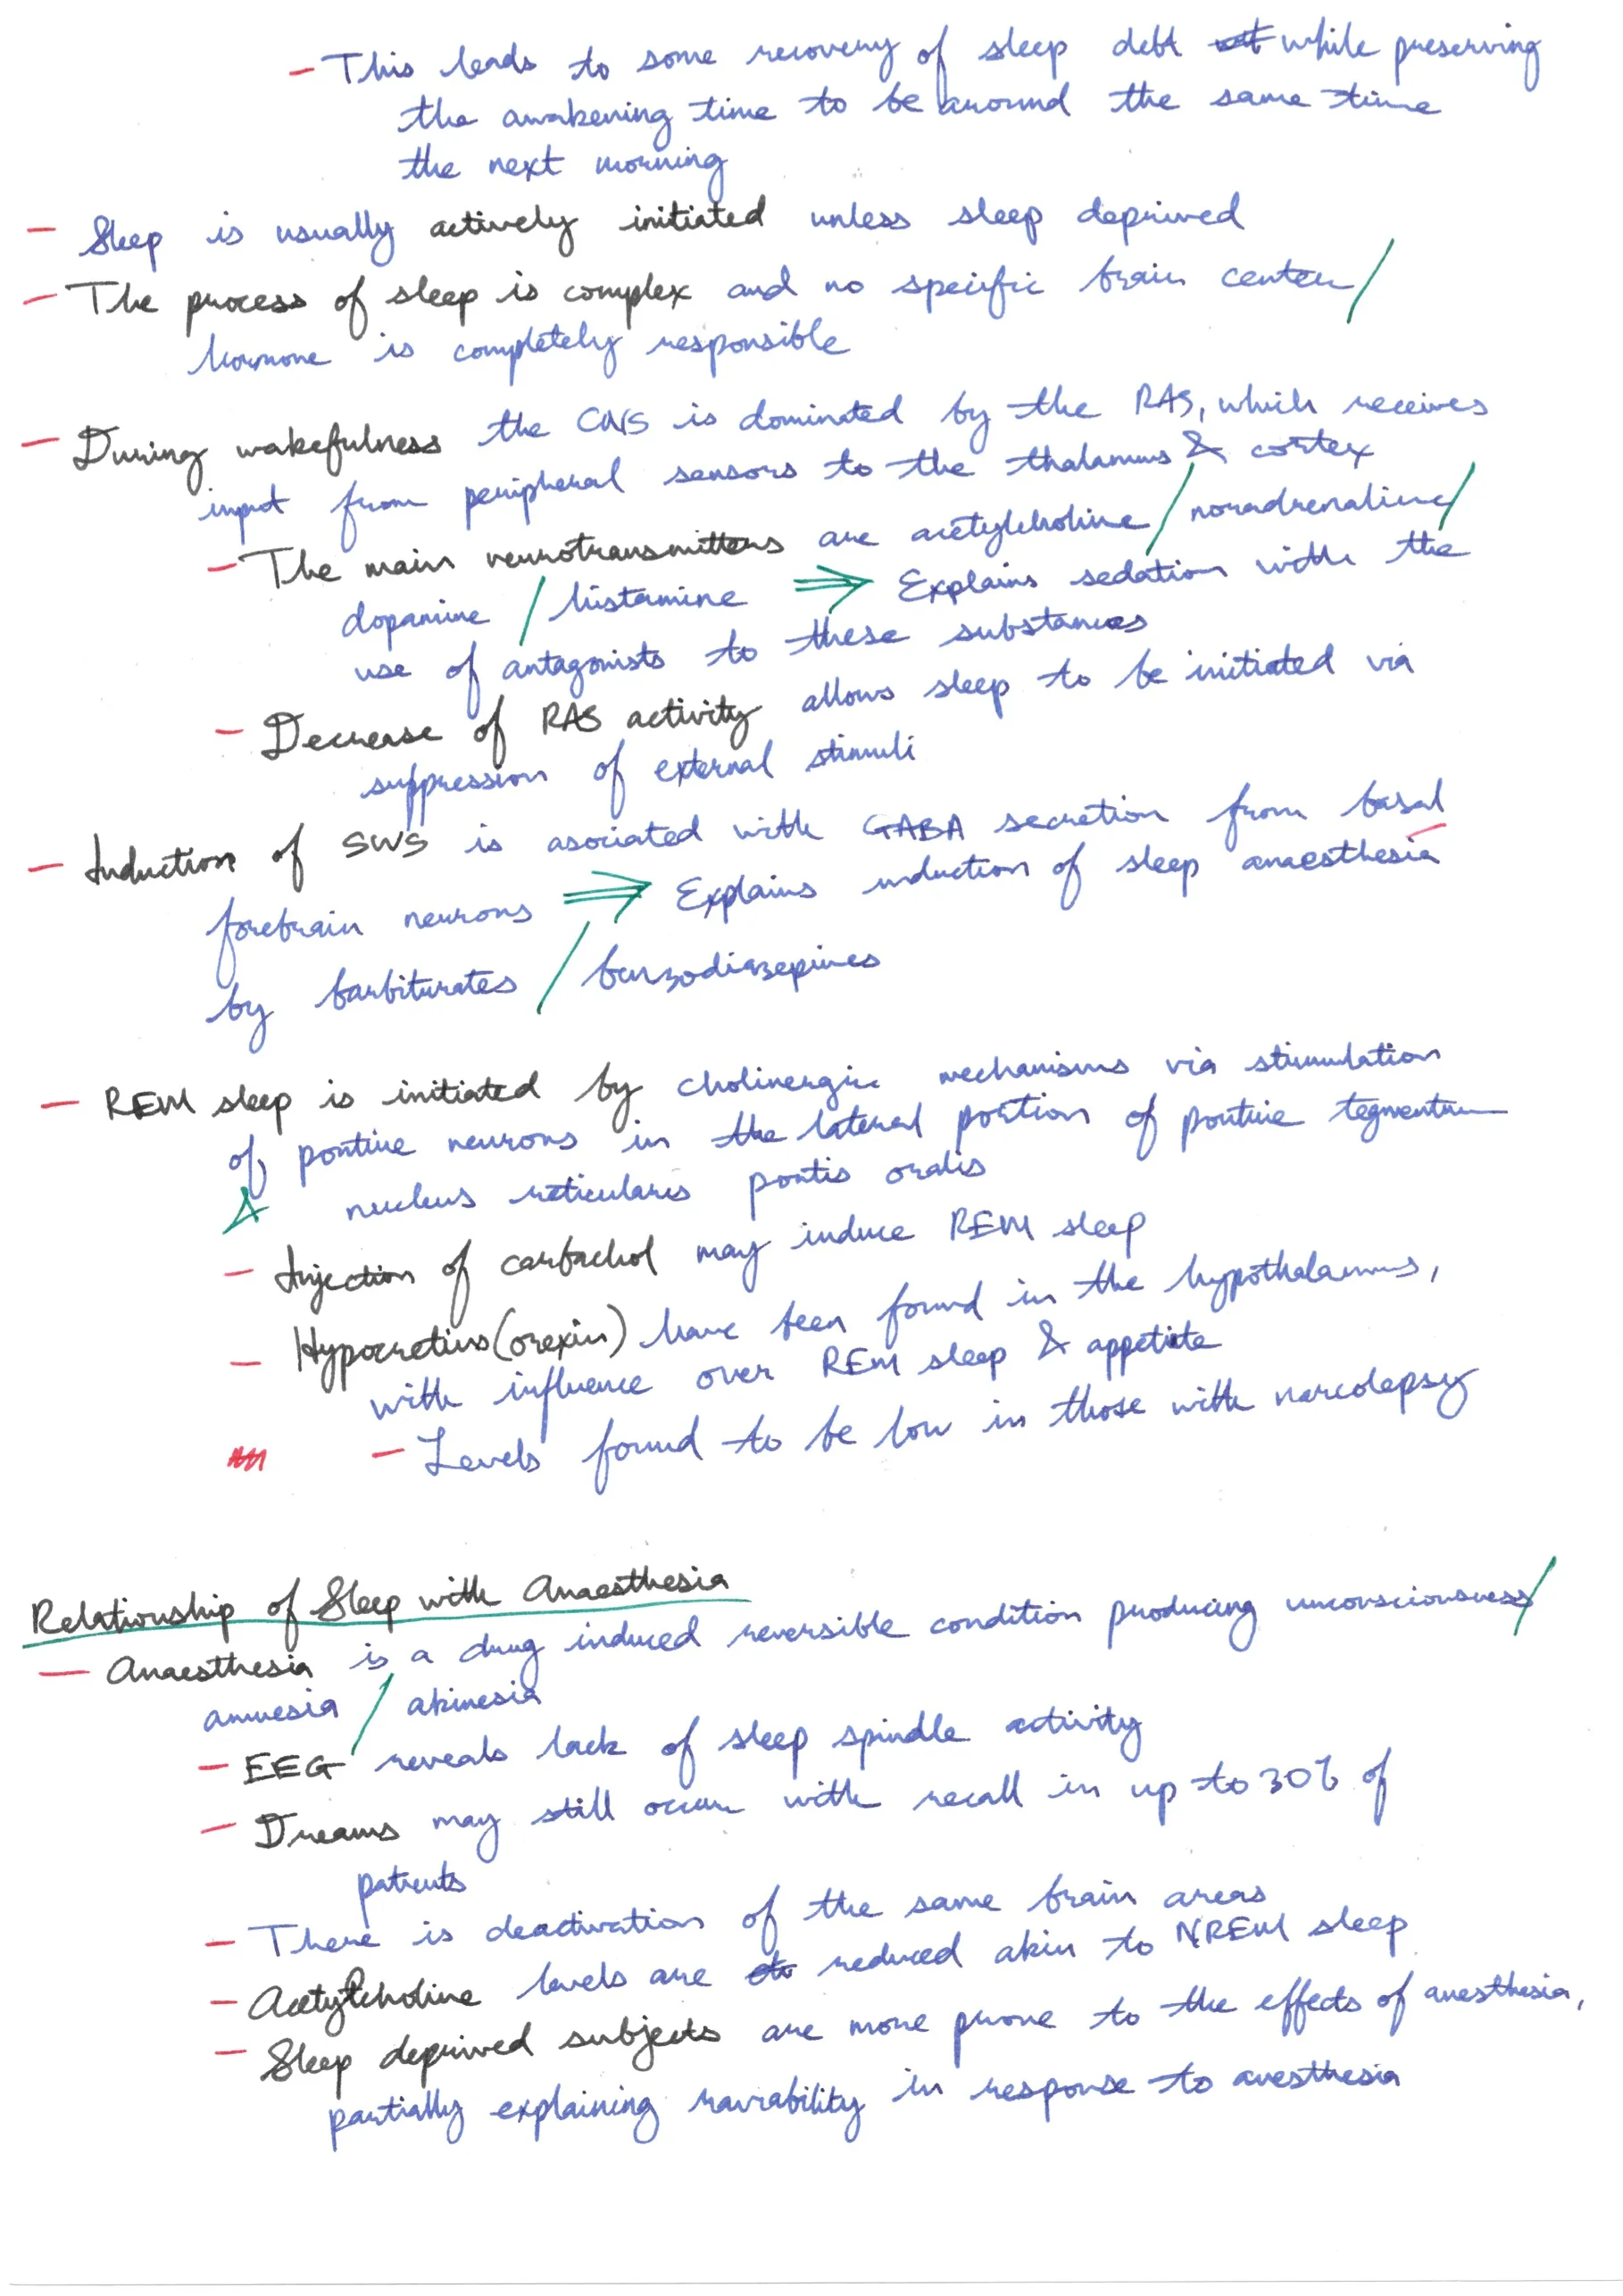 - This leads to some recovery of sleep debt while preserving
the awakening time to be around the same time
the next morning
- Sleep is usually actively initiated unless sleep deprived
- The process of sleep is complex and no specific brain center/
hormone is completely responsible
- During wakefulness the CNS is dominated by the RAS, which receives
input from peripheral sensors to the thalamus & cortex
- The main neurotransmitters are acetylcholine / noradrenaline/
dopamine / histamine ⇒ Explains sedation with the
use of antagonists to these substances
- Decrease of RAS activity allows sleep to be initiated via
suppression of external stimuli
- Induction of SWS is asociated with GABA secretion from basal
forebrain neurons ⇒ Explains induction of sleep anaesthesia
by barbiturates / benzodiazepines
- REM sleep is initiated by cholinergic mechanisms via stimulation
of pontine neurons in the lateral portion of pontine tegmentum
& nucleus reticularis pontis oralis
- Injection of carbachol may induce REM sleep
- Hypocretins (orexin) have been found in the hypothalamus,
with influence over REM sleep & appetite
- Levels found to be low in those with narcolepsy
Relationship of Sleep with Anaesthesia
- Anaesthesia is a drug induced reversible condition producing unconsciousness/
amnesia / akinesia
- EEG reveals lack of sleep spindle activity
- Dreams may still occur with recall in up to 30% of
patients
- There is deactivation of the same brain areas
- Acetylcholine levels are reduced akin to NREM sleep
- Sleep deprived subjects are more prone to the effects of anesthesia,
partially explaining variability in response to anesthesia